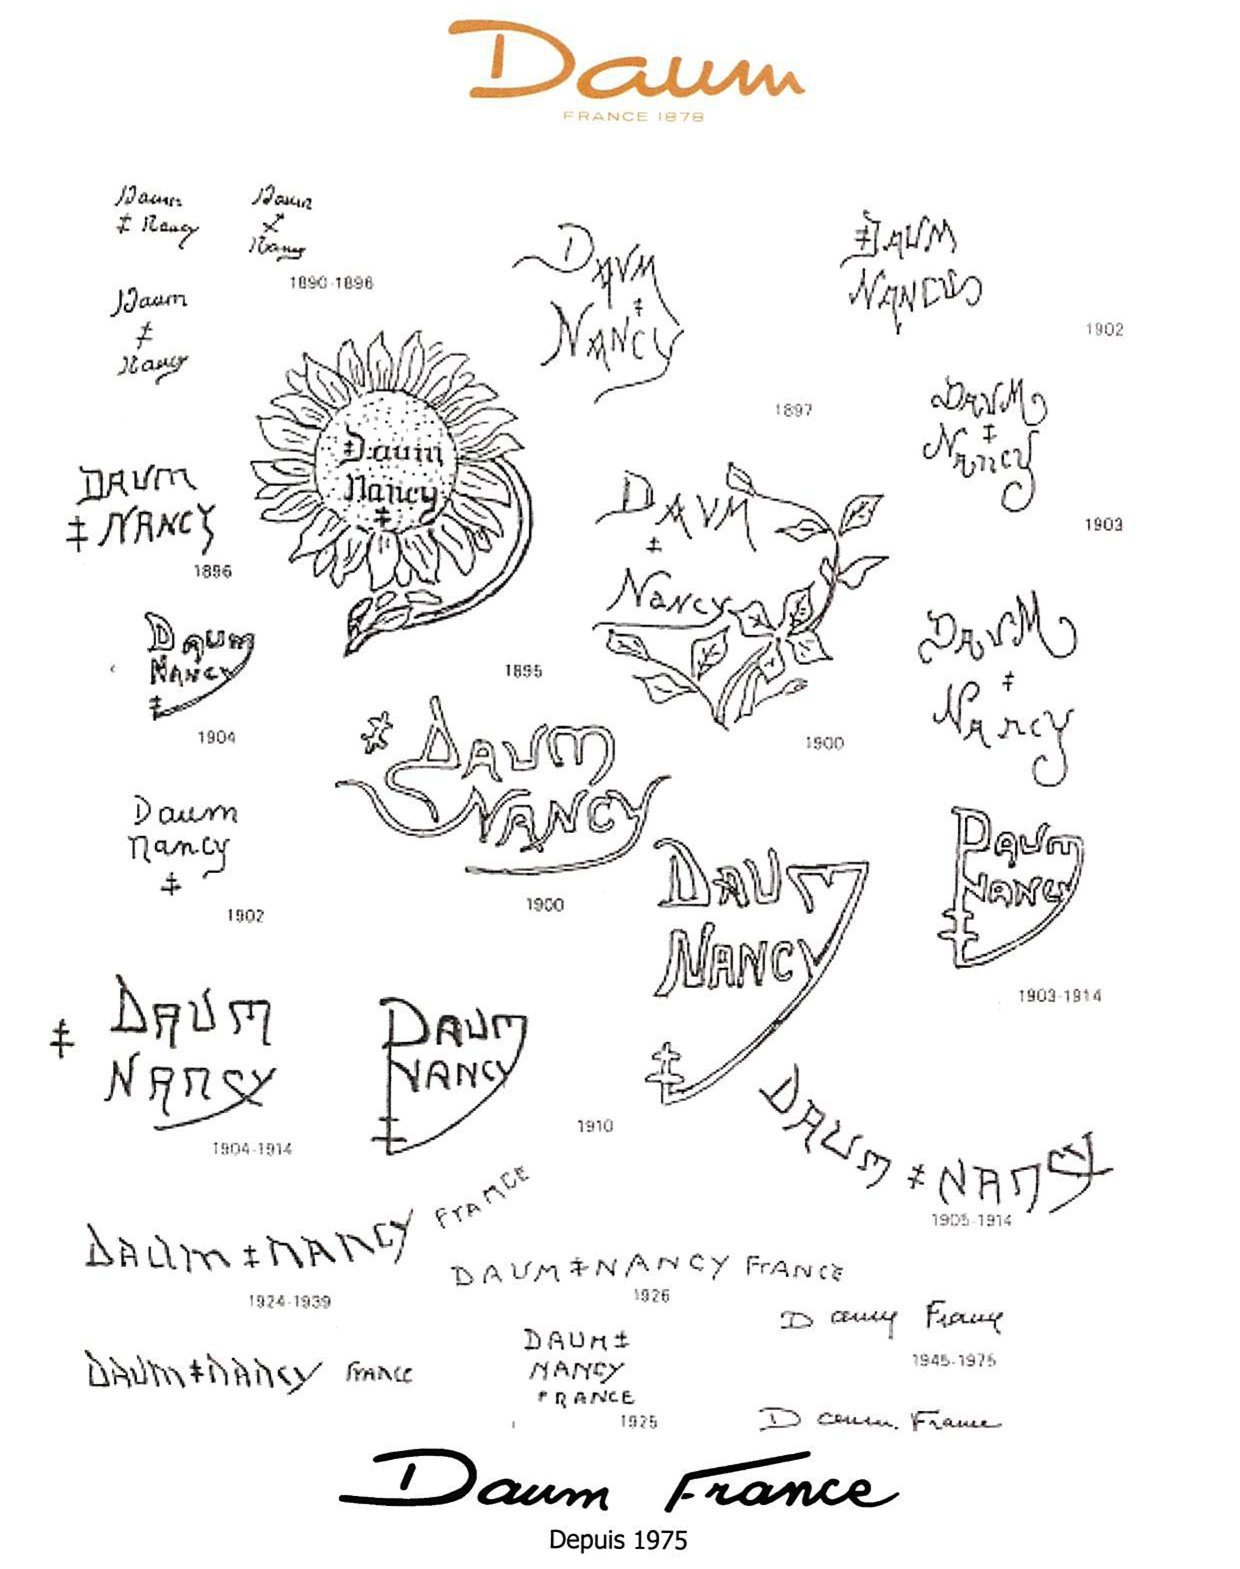 Daum
FRANCE 1878
Daum
‡ Nancy
Daum
‡
Nancy
1890-1896
Daum
‡
Nancy
DAUM
‡
NANCY
1897
‡ DAUM
NANCY
1902
DAUM
‡
NANCY
1903
DAUM
‡ NANCY
1896
Daum
Nancy
‡
1895
DAUM
‡
NANCY
1900
DAUM
‡
NANCY
DAUM
NANCY
‡
1904
‡ DAUM
NANCY
1900
Daum
nancy
‡
1902
DAUM
NANCY
‡
1910
DAUM
NANCY
‡
1903-1914
‡ DAUM
NANCY
1904-1914
DAUM
NANCY
‡
DAUM ‡ NANCY
1905-1914
DAUM ‡ NANCY FRANCE
1924-1939
DAUM ‡ NANCY FRANCE
1926
DAUM ‡ NANCY FRANCE
DAUM ‡
NANCY
FRANCE
1925
Daum France
1945-1975
Daum France
Daum France
Depuis 1975